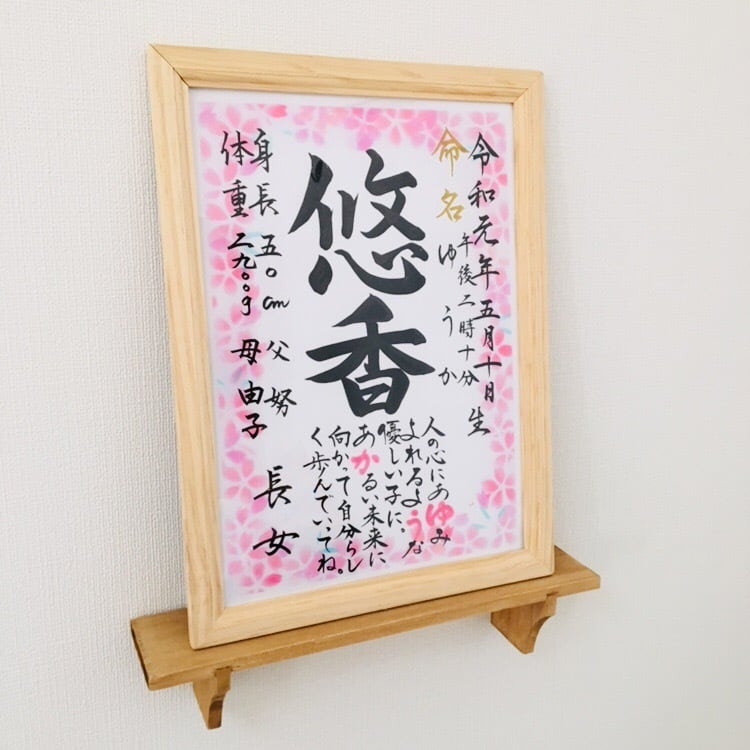 令和元年五月十日生
午後二時十分
命名
ゆうか
悠香
人の心にあゆみ
よれるような
優しい子に。
あかるい未来に
向かって自分らし
く歩んでいってね。
身長 五〇cm
体重 二九〇〇g
父 努
母 由子
長女